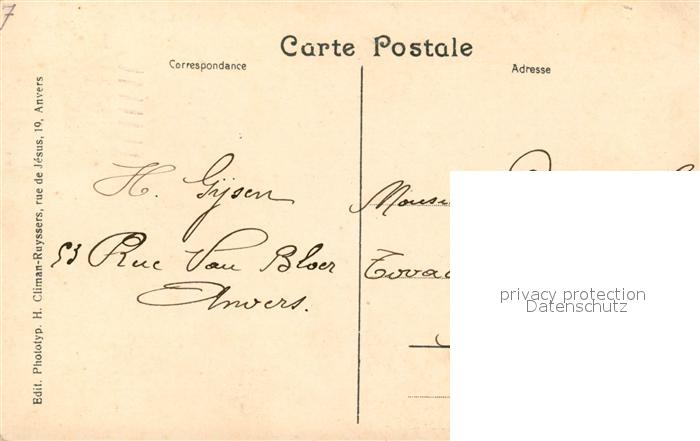 7
Carte Postale
Correspondance
Adresse
Edit. Phototyp. H. Climan-Ruyssers, rue de Jésus, 19, Anvers
H. Gijsen
53 Rue Van Bloer
Anvers.
privacy protection
Datenschutz